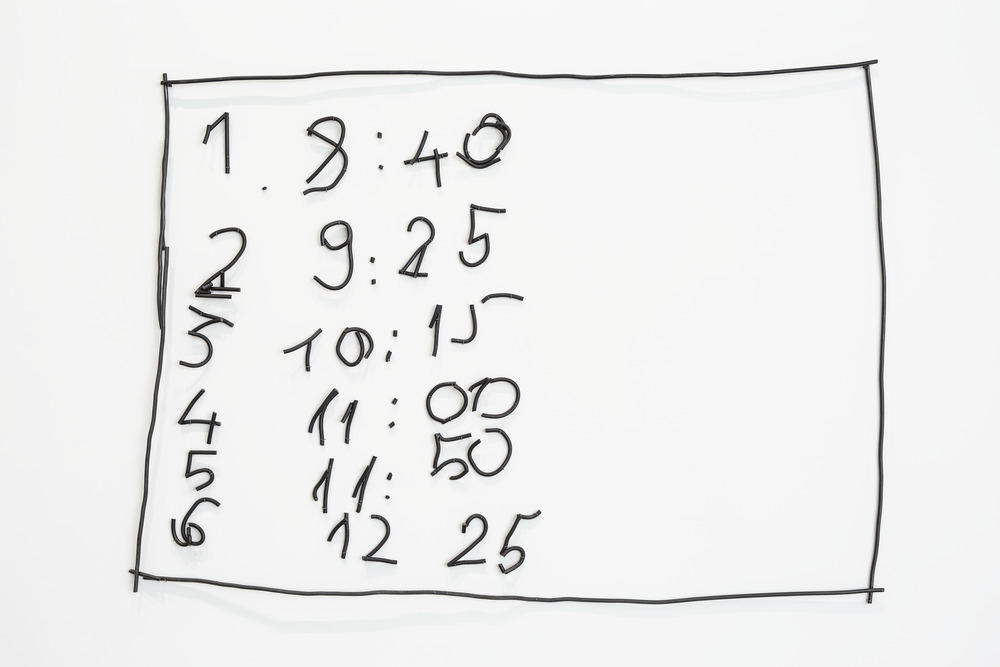 1. 8:40
2 9:25
3 10:15
4 11:00
5 11:50
6 12 25